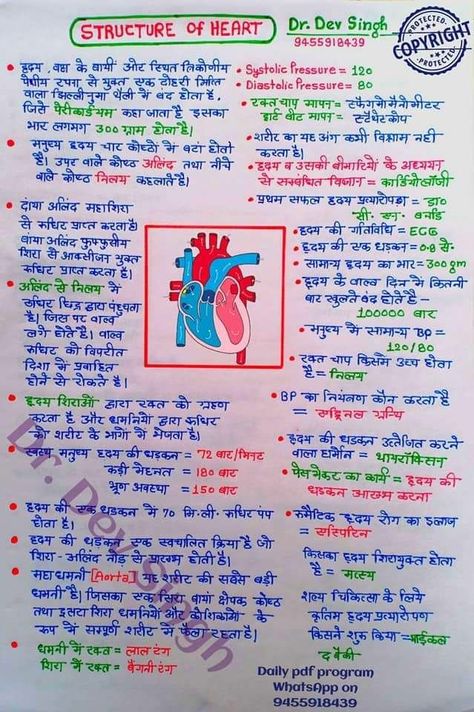 STRUCTURE OF HEART
Dr. Dev Singh
9455918439
PROTECTED
COPYRIGHT
PROTECTED
• हृदय, वक्ष के बायीं ओर स्थित त्रिकोणीय
पेशीय रचना से युक्त एक दोहरी भित्ति
वाला झिल्लीनुमा थैली में बंद होता है,
जिसे पैरीकार्डियम कहा जाता है इसका
भार लगभग 300 ग्राम होता है।
• मनुष्य हृदय चार कोष्ठों में बंटा होता
है। ऊपर वाले कोष्ठ अलिंद तथा नीचे
वाले कोष्ठ निलय कहलाते है।
• दाया अलिंद महाशिरा
से रुधिर प्राप्त करता है।
बाया अलिंद फुफ्फुसीय
शिरा से आक्सीजन युक्त
रुधिर प्राप्त करता है।
• अलिंद से निलय में
रुधिर छिद्र द्वारा पहुंचता
है। जिस पर वाल्व
लगे होते है। वाल्व
रुधिर को विपरीत
दिशा में प्रवाहित
होने से रोकते है।
• हृदय शिराओं द्वारा रक्त को ग्रहण
करता है और धमनियों द्वारा रुधिर
को शरीर के भागों में भेजता है।
• स्वस्थ मनुष्य हृदय की धड़कन = 72 बार/मिनट
कड़ी मेहनत = 180 बार
भ्रूण अवस्था = 150 बार
• हृदय की एक धड़कन में 70 मि.ली. रुधिर पंप
होता है।
• हृदय की धड़कन एक स्वचालित क्रिया है जो
शिरा-अलिंद नोड़ से प्रारम्भ होती है।
• महाधमनी [Aorta] यह शरीर की सबसे बड़ी
धमनी है। जिसका एक सिरा बायां क्षेपक कोष्ठ
तथा दूसरा सिरा धमनियों और कोशिकाओं के
रूप में सम्पूर्ण शरीर में फैला रहता है।
• धमनी में रक्त = लाल रंग
शिरा में रक्त = बैंगनी रंग
• Systolic Pressure = 120
• Diastolic Pressure = 80
• रक्त चाप मापन = स्फेग्मोमैनोमीटर
हार्ट बीट मापन = स्टैथेस्कोप
• शरीर का यह अंग कभी विश्राम नही
करता है।
• हृदय व उसकी बीमारियों के अध्ययन
से सम्बंधित विज्ञान = कार्डियोलॉजी
• प्रथम सफल हृदय प्रत्यारोपण = डा०
सी. एन. बर्नार्ड
• हृदय की गतिविधि = ECG
• हृदय की एक धड़कन = 0.8 से.
• सामान्य हृदय का भार = 300 gm
• हृदय के वाल्व दिन में कितनी
बार खुलते बंद होते है –
100000 बार
• मनुष्य में सामान्य BP =
120/80
• रक्त चाप किसमें उच्च होता
है = निलय
• BP का नियंत्रण कौन करता है
= एड्रिनल ग्रन्थि
• हृदय की धड़कन उत्तेजित करने
वाला हार्मोन = थायरॉक्सिन
• पेस मेकर का कार्य = हृदय की
धड़कन आरम्भ करना
• रुमैटिक हृदय रोग का इलाज
= एस्पिरिन
किसका हृदय शिरायुक्त होता
है = मत्स्य
शल्य चिकित्सा के लिये
कृत्रिम हृदय प्रत्यारोपण
किसने शुरू किया = माईकल
द बैकी
Dr. Dev Singh
Daily pdf program
WhatsApp on
9455918439